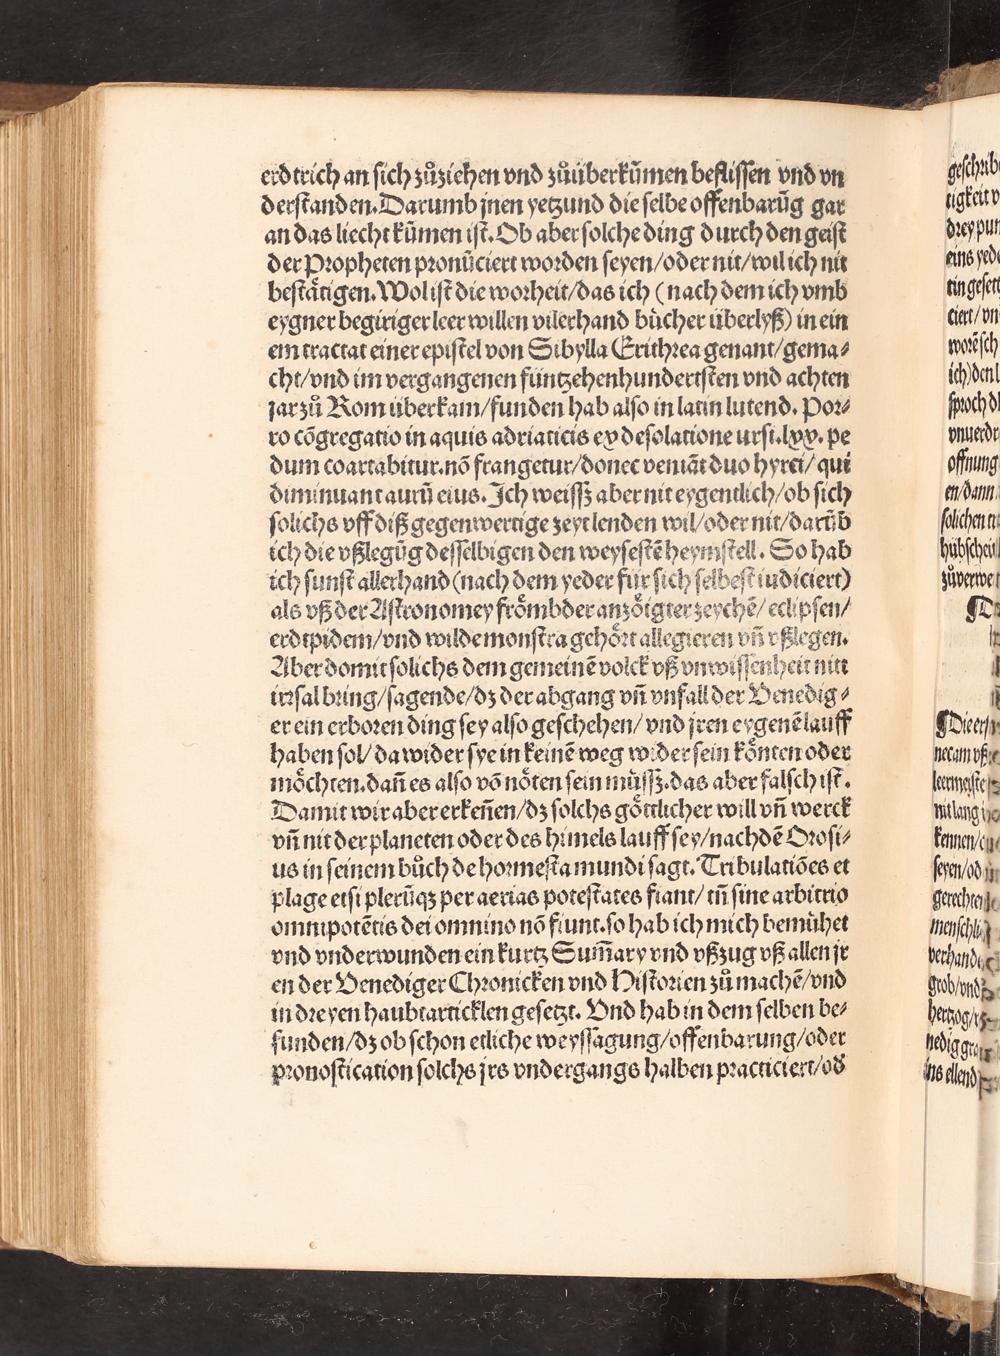 erdtrich an sich zůziehen vnd zůüberkūmen beflissen vnd vn
derstanden. Darumb jnen yetzund die selbe offenbarūg gar
an das liecht kūmen ist. Ob aber solche ding durch den geist
der Propheten pronūciert worden seyen/oder nit/wil ich nit
bestätigen. Wol ist die worheit/das ich (nach dem ich vmb
eygner begiriger leer willen vilerhand bücher überlyß) in ein
em tractat einer epistel von Sibylla Erithrea genant/gema⸗
cht/vnd im vergangenen füntzehenhundertsten vnd achten
jar zů Rom überkam/funden hab also in latin lutend. Por⸗
ro cōgregatio in aquis adriaticis ex desolatione ursi.lxx. pe
dum coartabitur.nō frangetur/donec veniāt duo hyrci/ qui
diminuant aurū eius. Ich weissz aber nit eygentlich/ob sich
solichs vff diß gegenwertige zeyt lenden wil/oder nit/darūb
ich die vßlegūg desselbigen den weysestē heymstell. So hab
ich sunst allerhand (nach dem yeder für sich selbest iudiciert)
als vß der Astronomey frömbder anzöigter zeychē/ eclipsen/
erdtpidem/vnd wilde monstra gehört allegieren vn̄ vßlegen.
Aber domit solichs dem gemeinē volck vß vnwissenheit nitt
irrsal bring/sagende/dz der abgang vn̄ vnfall der Venedig⸗
er ein erboren ding sey also geschehen/ vnd jren eygenē lauff
haben sol/ da wider sye in keinē weg wider sein könten oder
möchten.dan̄ es also vō nöten sein müssz.das aber falsch ist.
Damit wir aber erken̄en/dz solchs göttlicher will vn̄ werck
vn̄ nit der planeten oder des himels lauff sey/nachdē Orosi⸗
us in seinem bůch de hormesta mundi sagt. Tribulatiōes et
plage etsi plerūqz per aerias potestates fiant/ tn̄ sine arbitrio
omnipotētis dei omnino nō fiunt.so hab ich mich bemühet
vnd vnderwunden ein kurtz Sum̄ary vnd vßzug vß allen jr
en der Venediger Chronicken vnd Historien zů machē/vnd
in dreyen haubtarticklen gesetzt. Vnd hab in dem selben be⸗
funden/dz ob schon etliche weyssagung/offenbarung/oder
pronostication solchs jrs vndergangs halben practiciert/od